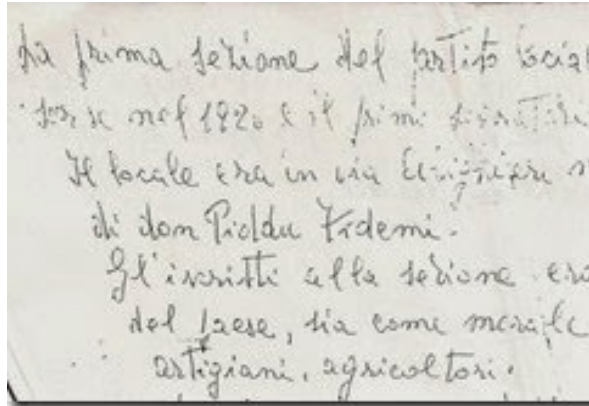 La prima sezione del partito socia
sorse nel 1920 e il primi
Il locale era in via
di don Pioddu Fidemi.
Gl'iscritti alla sezione era
del paese, sia come morale
artigiani, agricoltori.